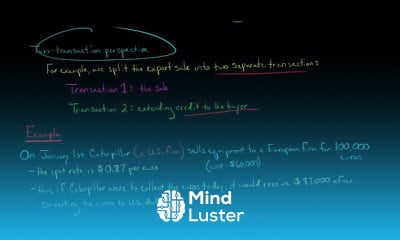 Two-transaction perspective
For example, we split the export sale into two separate transactions:
Transaction 1: the sale
Transaction 2: extending credit to the buyer
Example
On January 1st Caterpillar (a U.S. firm) sells equipment to a European firm for 100,000 euros
(cost = $60,000)
- the spot rate is $0.87 per euro
- thus if Caterpillar were to collect the euros today, it would receive $87,000 after
converting the euros to U.S.
Mind
Luster